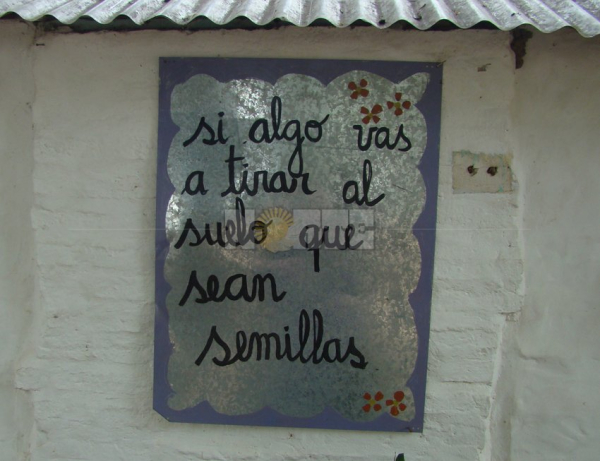 si algo vas
a tirar al
suelo que
sean
semillas